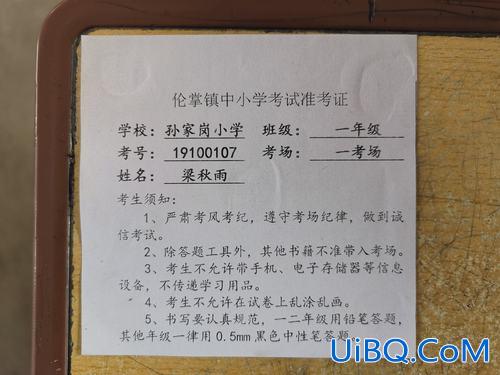 伦掌镇中小学考试准考证
学校：孙家岗小学 班级：一年级
考号：19100107 考场：一考场
姓名：梁秋雨
考生须知：
1、严肃考风考纪，遵守考场纪律，做到诚
信考试。
2、除答题工具外，其他书籍不准带入考场。
3、考生不允许带手机、电子存储器等信息
设备，不传递学习用品。
4、考生不允许在试卷上乱涂乱画。
5、书写要认真规范，一二年级用铅笔答题，
其他年级一律用0.5mm黑色中性笔答题。
UiBQ.CoM